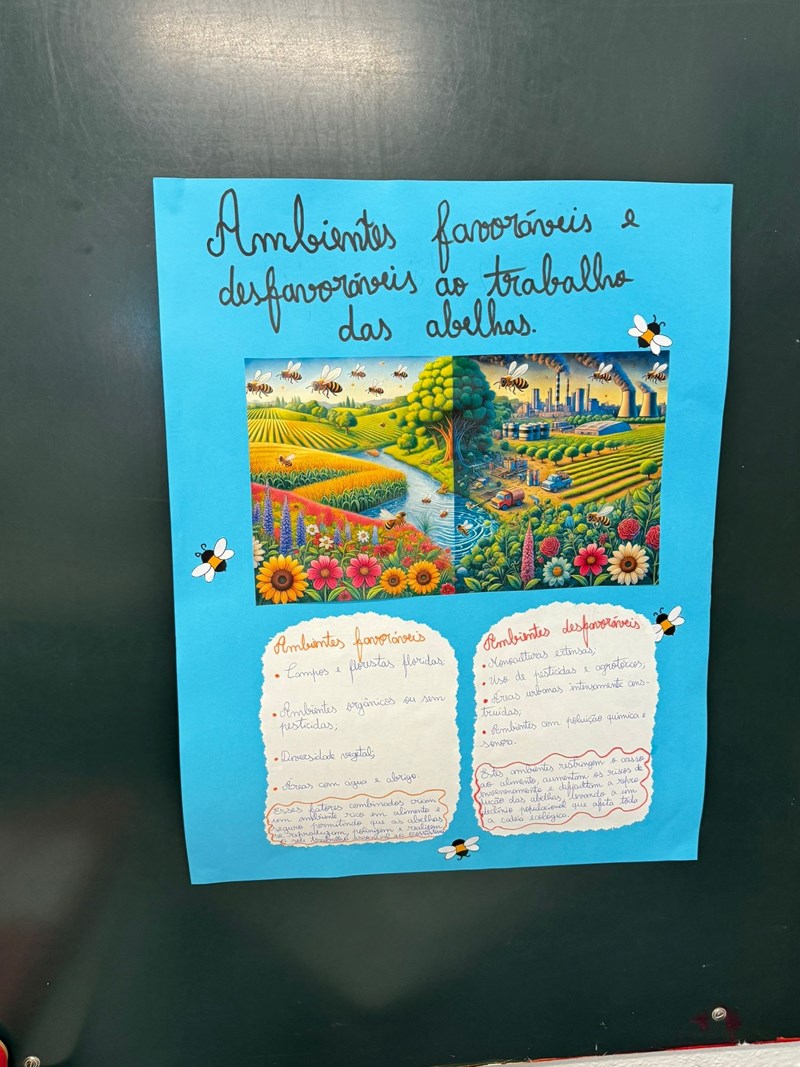 Ambientes favoráveis e
desfavoráveis ao trabalho
das abelhas.
Ambientes favoráveis
• Campos e florestas floridas
• Ambientes orgânicos ou sem
pesticidas;
• Diversidade vegetal;
• Áreas com água e abrigo
Esses fatores combinados criam
um ambiente rico em alimento e
seguro permitindo que as abelhas
se reproduzam, polinizem e realizem
o seu trabalho essencial ao
Ambientes desfavoráveis
• Monoculturas extensas;
• Uso de pesticidas e agrotóxicos;
• Áreas urbanas intensamente cons-
truídas;
• Ambientes com poluição química e
sonora.
Estes ambientes restringem o
ao alimento, aumentam os riscos de
envenenamento e dificultam a repro
dução das abelhas, levando a um
declínio populacional que afeta toda
a cadeia ecológica.